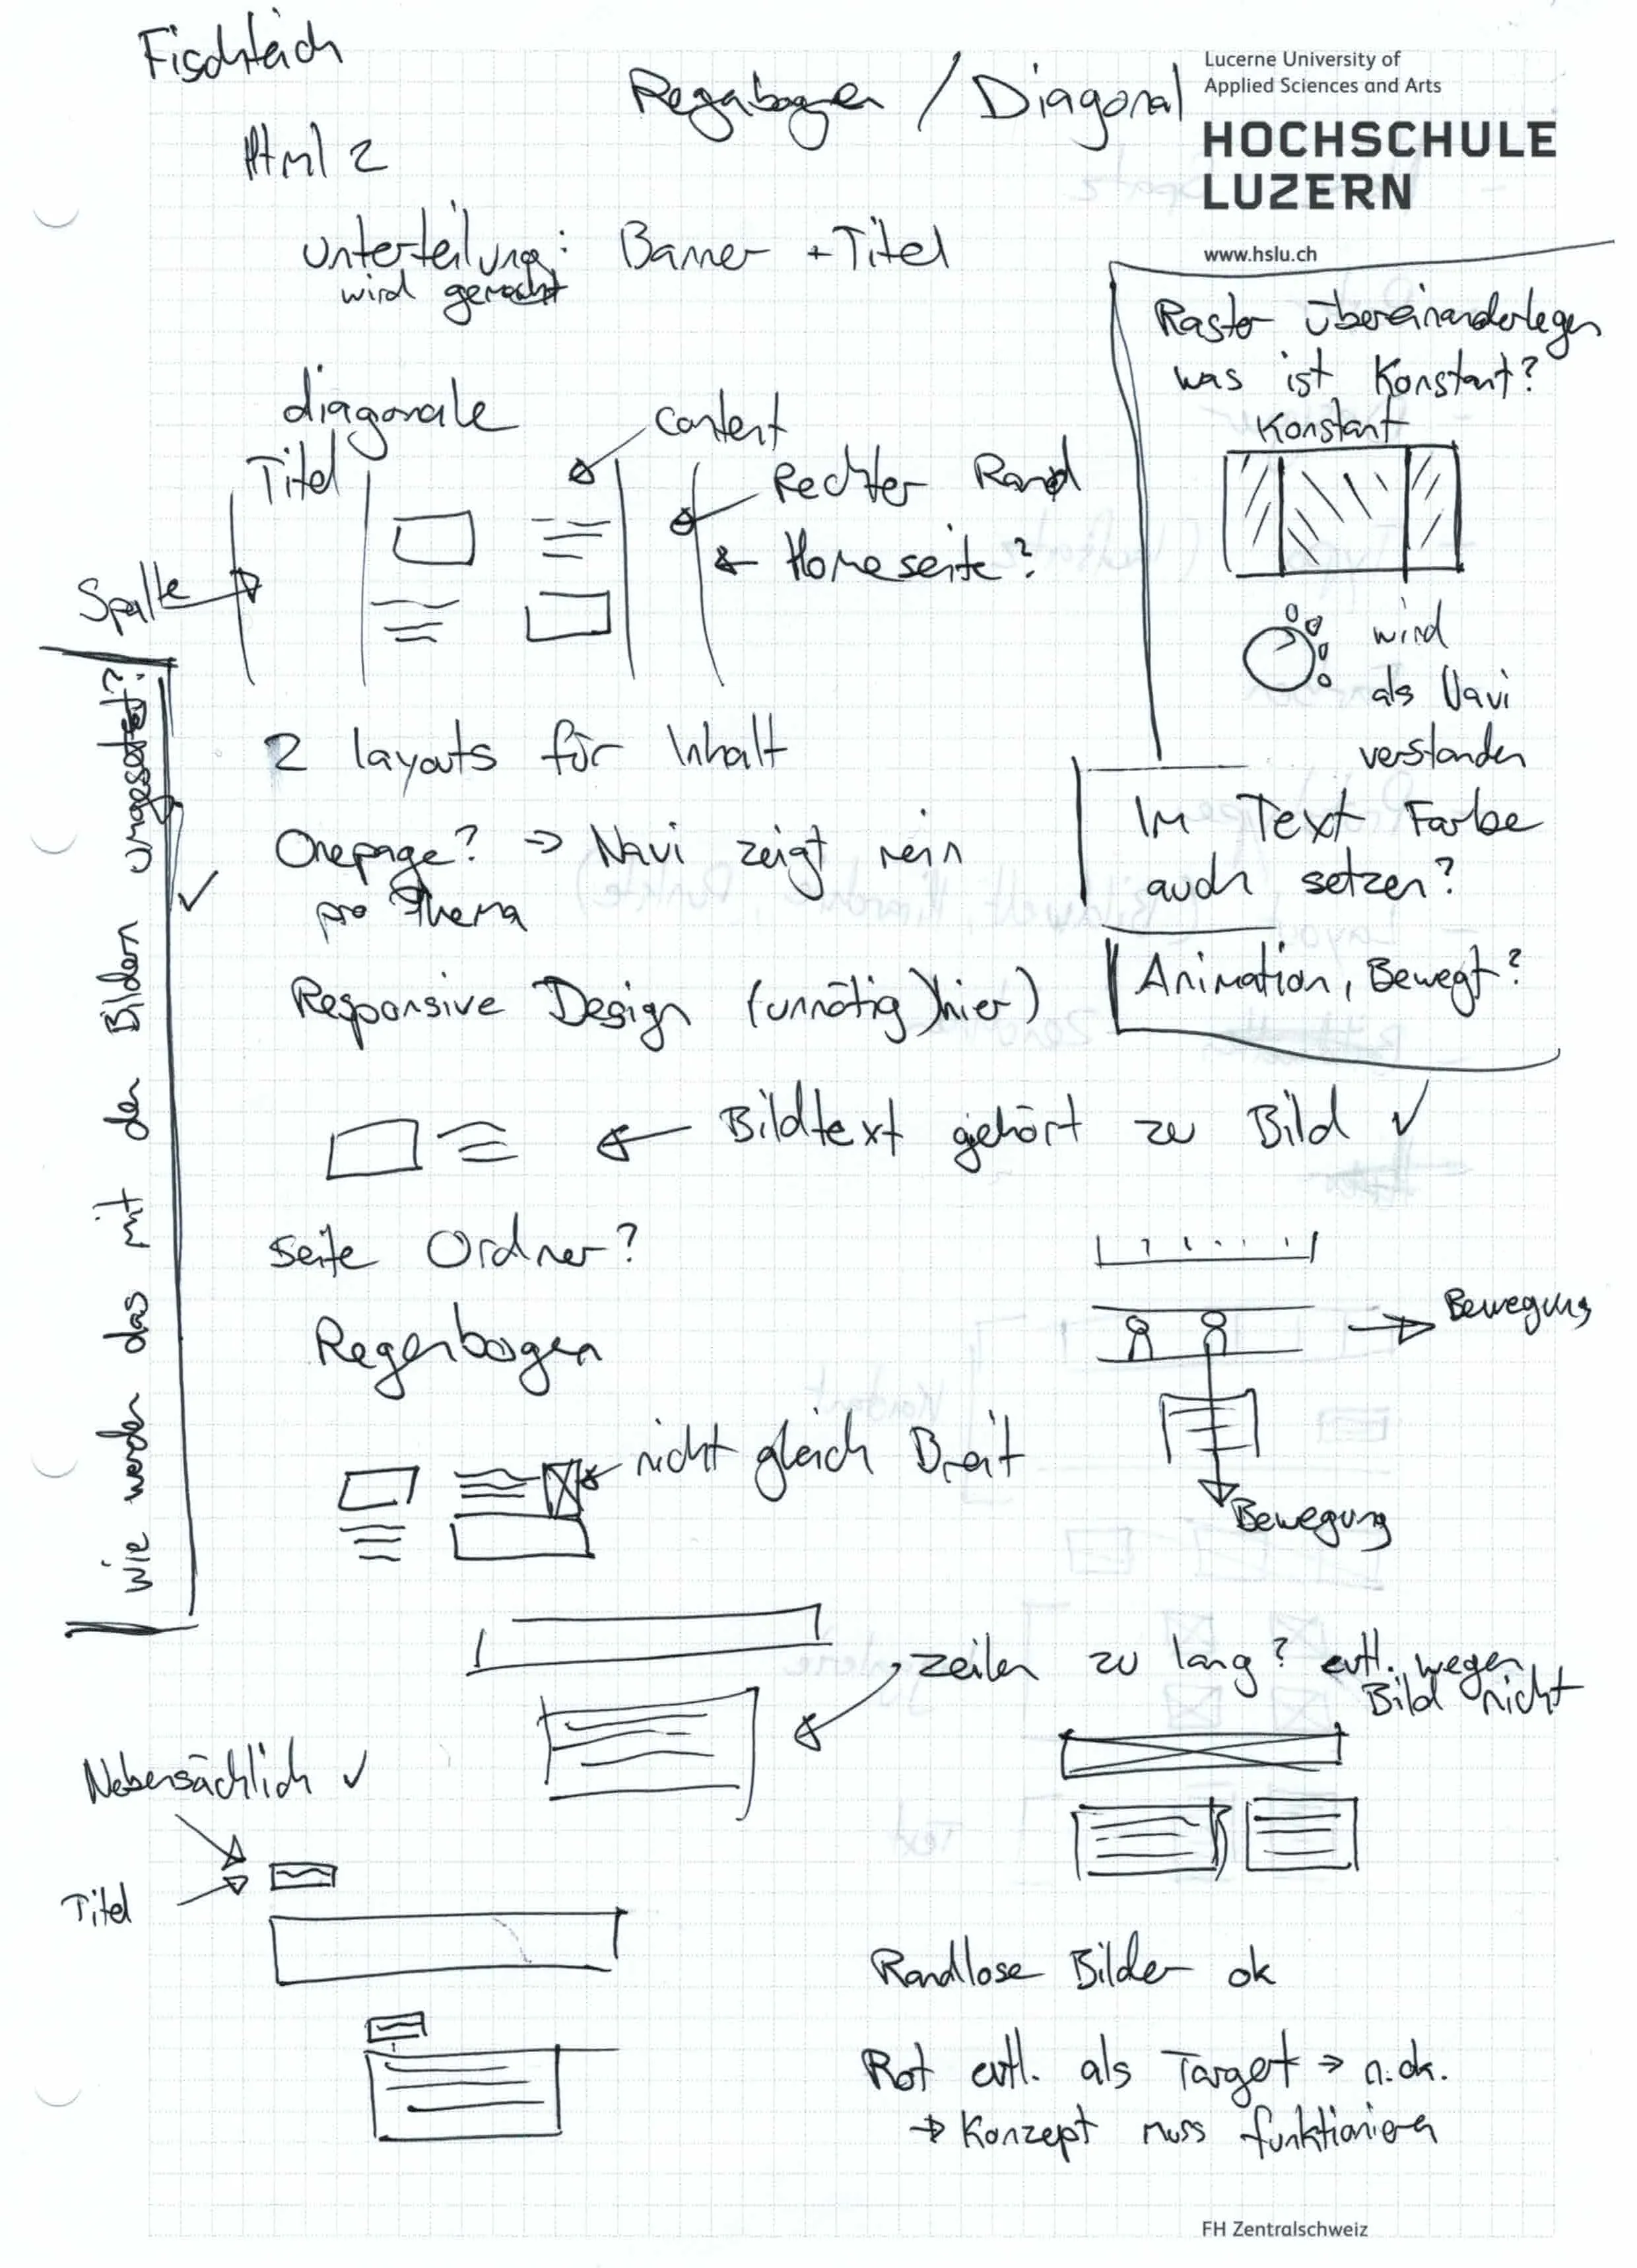 Fischteich
Regabogen / Diagonal
Lucerne University of
Applied Sciences and Arts
HOCHSCHULE
LUZERN
www.hslu.ch
Html 2
Unterteilung: Banner + Titel
wird gemacht
Raster übereinanderlegen
was ist Konstant?
Konstant
diagonale
Titel
content
Rechter Rand
Homeseite?
Spalte
wird
als Navi
verstanden
wie werden das mit den Bildern umgesetzt?
2 layouts für Inhalt
Onepage? ⇒ Navi zeigt rein
pro Thema
Im Text Farbe
auch setzen?
Responsive Design (unnötig)hier)
Animation, Bewegt?
Bildtext gehört zu Bild ✓
Seite Ordner?
Regenbogen
Bewegung
nicht gleich Breit
Bewegung
Zeilen zu lang? evtl. wegen
Bild nicht
Nebensächlich ✓
Titel
Randlose Bilder ok
Rot evtl. als Target ⇒ n.ok.
→ Konzept muss funktionieren
FH Zentralschweiz